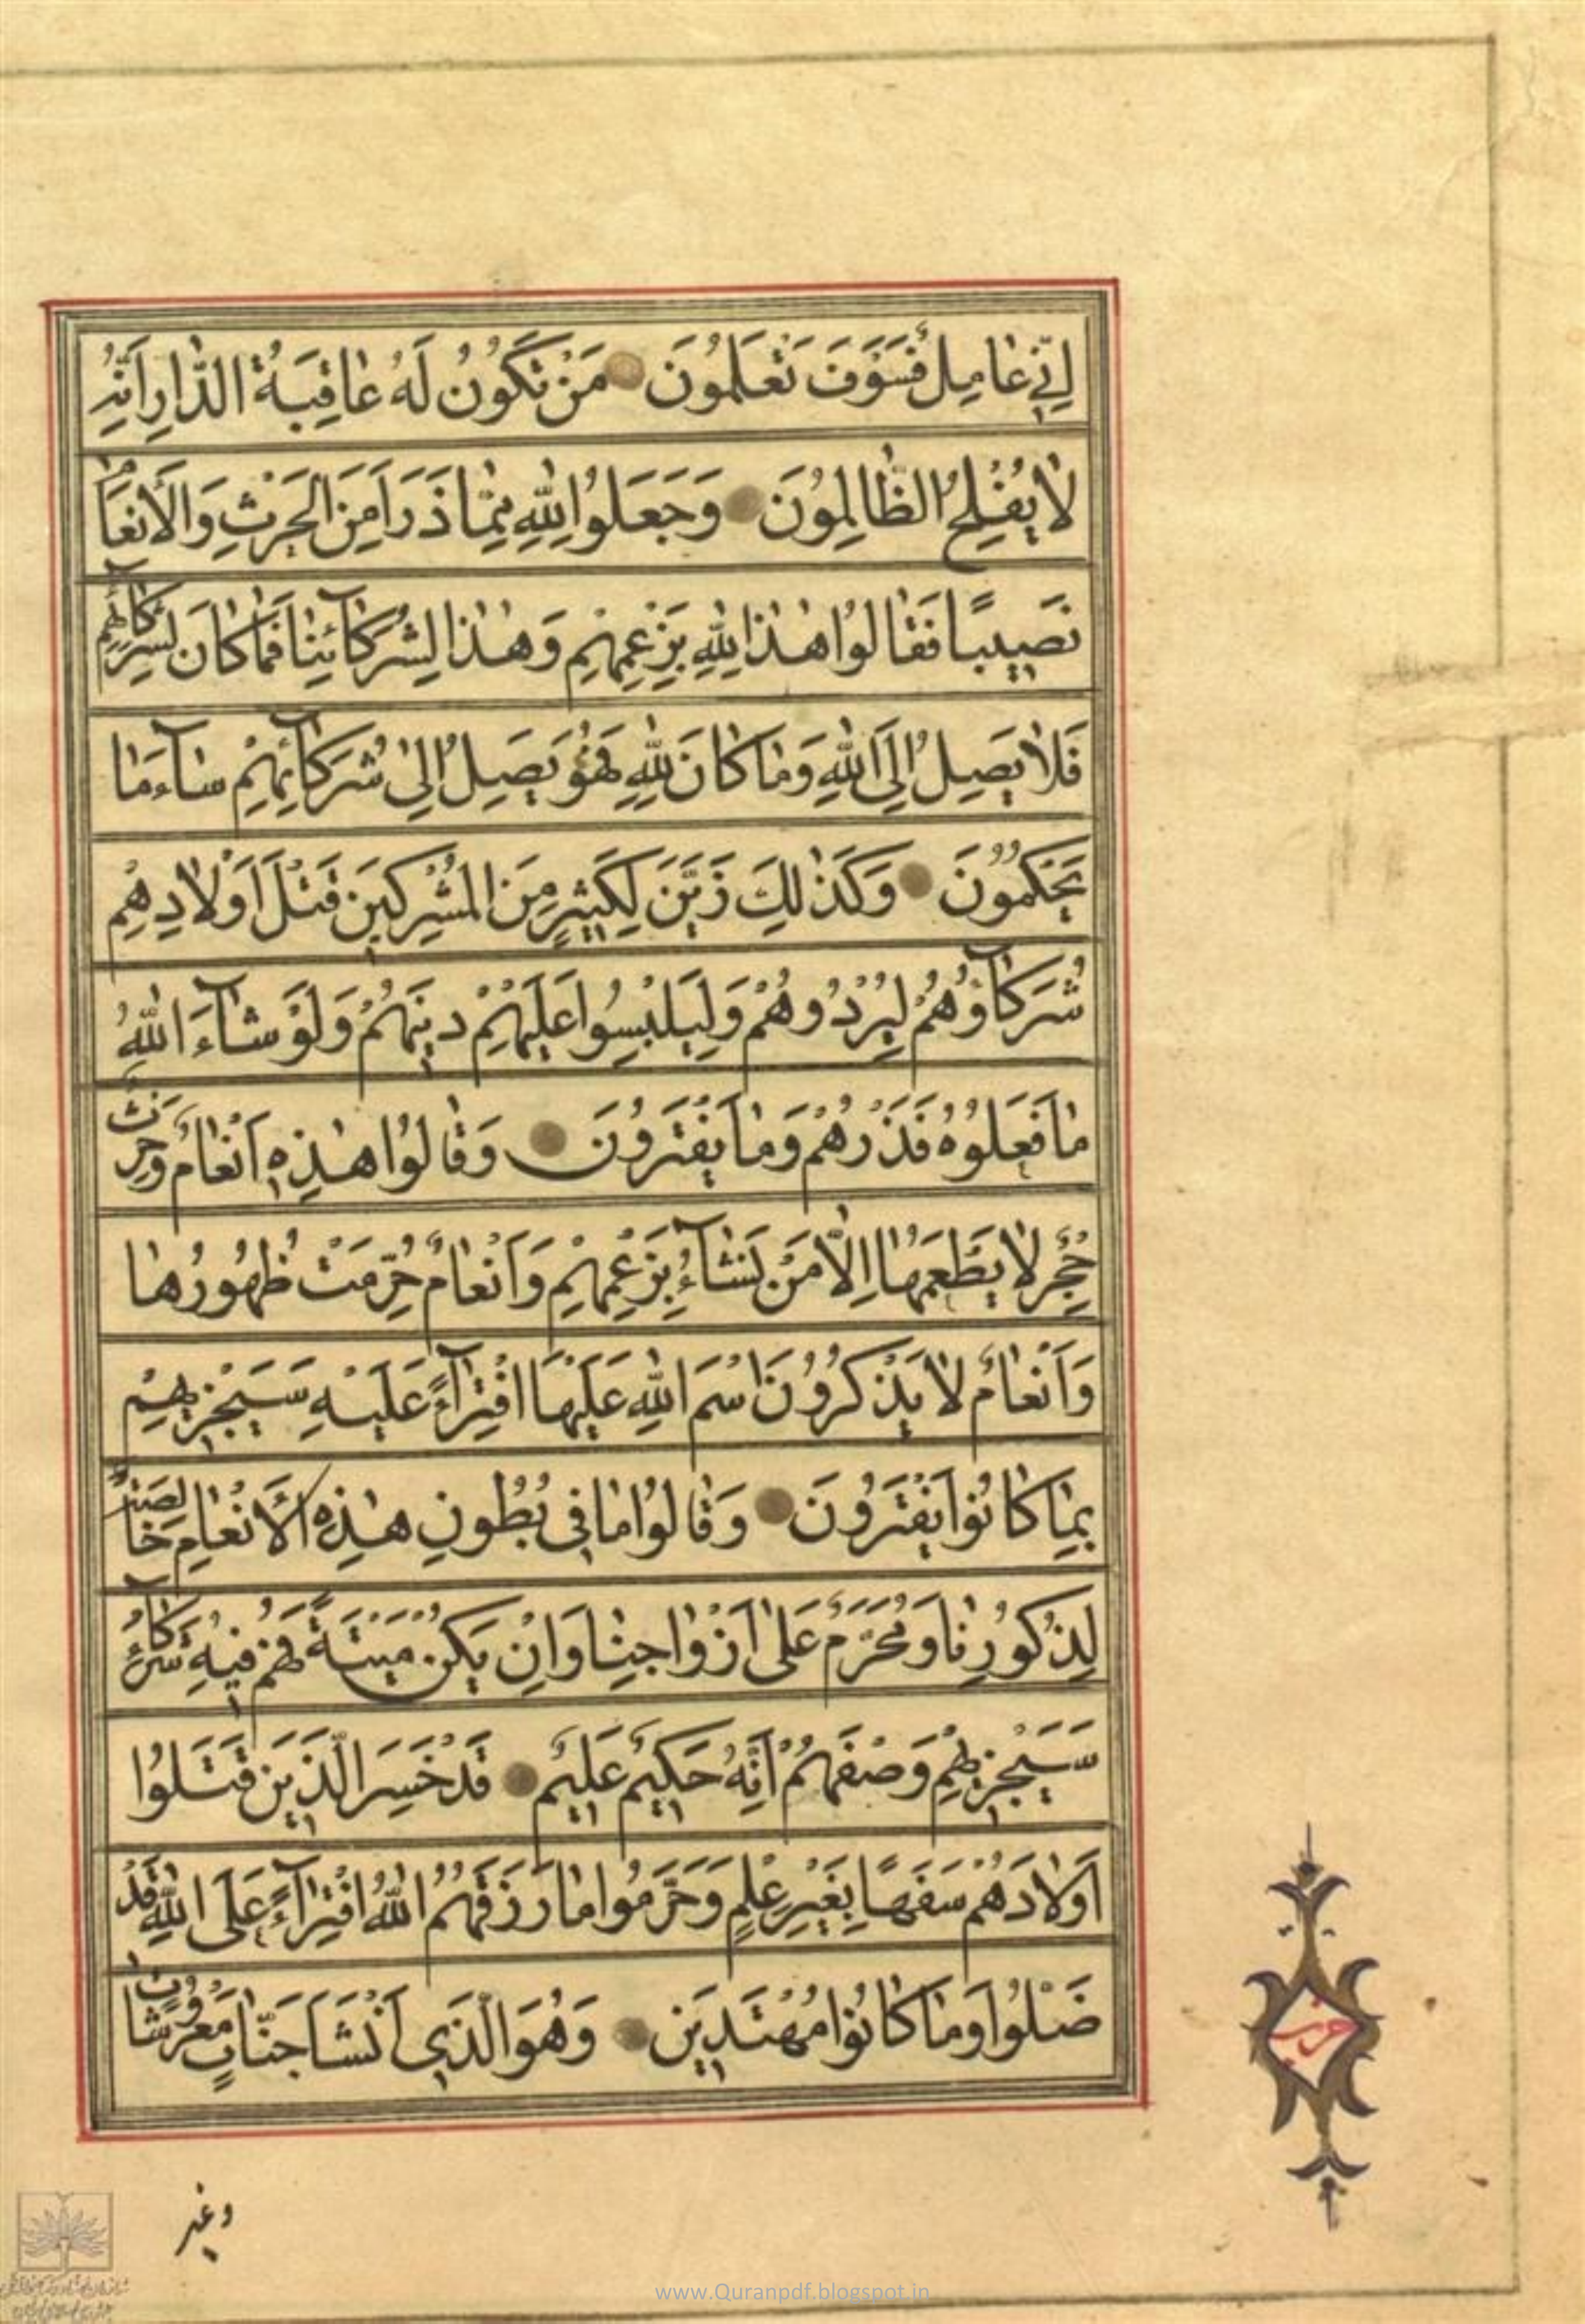 اِنّي عٰامِلٌ فَسَوْفَ تَعْلَمُونَ مَنْ تَكُونُ لَهُ عٰاقِبَةُ الدّٰارِ اِنَّهُ
لاٰ يُفْلِحُ الظّٰالِمُونَ وَجَعَلُوا لِلّٰهِ مِمّٰا ذَرَاَ مِنَ الْحَرْثِ وَالْاَنْعٰامِ
نَصيبًا فَقٰالُوا هٰذٰا لِلّٰهِ بِزَعْمِهِمْ وَهٰذٰا لِشُرَكٰآئِنٰا فَمٰا كٰانَ لِشُرَكٰآئِهِمْ
فَلاٰ يَصِلُ اِلَى اللّٰهِ وَمٰا كٰانَ لِلّٰهِ فَهُوَ يَصِلُ اِلىٰ شُرَكٰآئِهِمْ سٰآءَ مٰا
يَحْكُمُونَ وَكَذٰلِكَ زَيَّنَ لِكَثيرٍ مِنَ الْمُشْرِكينَ قَتْلَ اَوْلاٰدِهِمْ
شُرَكٰآؤُهُمْ لِيُرْدُوهُمْ وَلِيَلْبِسُوا عَلَيْهِمْ دينَهُمْ وَلَوْ شٰآءَ اللّٰهُ
مٰا فَعَلُوهُ فَذَرْهُمْ وَمٰا يَفْتَرُونَ وَقٰالُوا هٰذِهِ اَنْعٰامٌ وَحَرْثٌ
حِجْرٌ لاٰ يَطْعَمُهٰا اِلاّٰ مَنْ نَشٰآءُ بِزَعْمِهِمْ وَاَنْعٰامٌ حُرِّمَتْ ظُهُورُهٰا
وَاَنْعٰامٌ لاٰ يَذْكُرُونَ اسْمَ اللّٰهِ عَلَيْهَا افْتِرٰآءً عَلَيْهِ سَيَجْزيهِمْ
بِمٰا كٰانُوا يَفْتَرُونَ وَقٰالُوا مٰا في بُطُونِ هٰذِهِ الْاَنْعٰامِ خٰالِصَةٌ
لِذُكُورِنٰا وَمُحَرَّمٌ عَلىٰ اَزْوٰاجِنٰا وَاِنْ يَكُنْ مَيْتَةً فَهُمْ فيهِ شُرَكٰآءُ
سَيَجْزيهِمْ وَصْفَهُمْ اِنَّهُ حَكيمٌ عَليمٌ قَدْ خَسِرَ الَّذينَ قَتَلُوا
اَوْلاٰدَهُمْ سَفَهًا بِغَيْرِ عِلْمٍ وَحَرَّمُوا مٰا رَزَقَهُمُ اللّٰهُ افْتِرٰآءً عَلَى اللّٰهِ قَدْ
ضَلُّوا وَمٰا كٰانُوا مُهْتَدينَ وَهُوَ الَّذي اَنْشَاَ جَنّٰاتٍ مَعْرُوشٰاتٍ
حزب
وغير
www.Quranpdf.blogspot.in